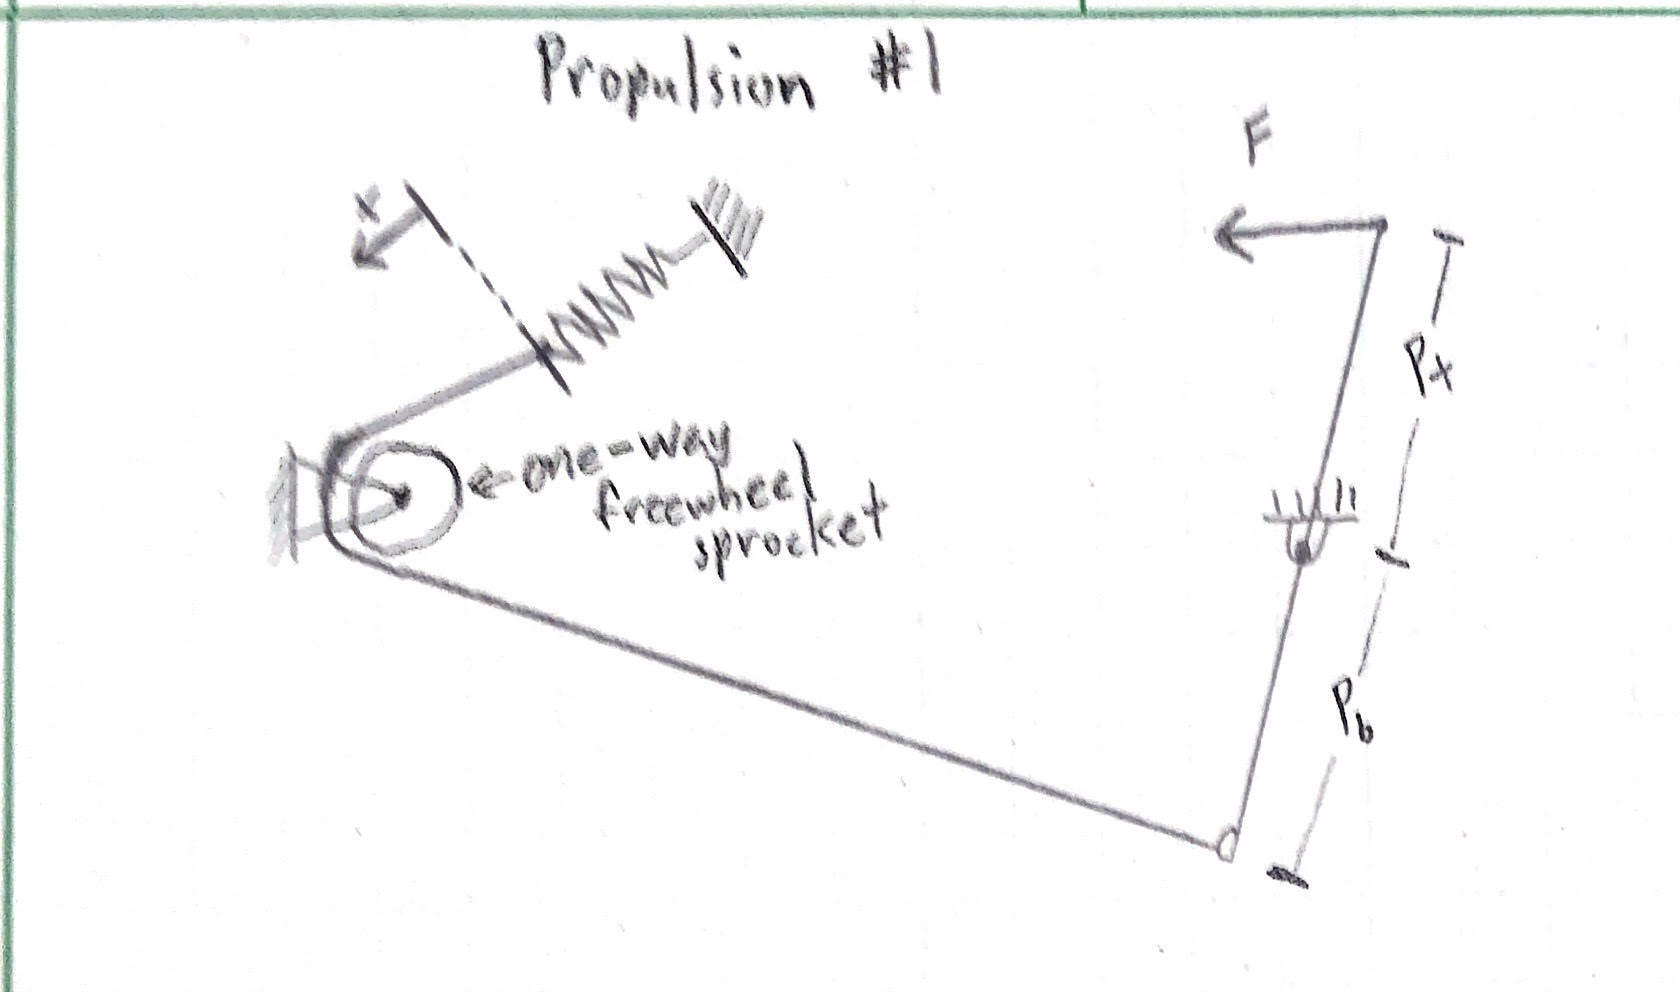 Propulsion #1
F
x
Px
←one-way
freewheel
sprocket
Pb